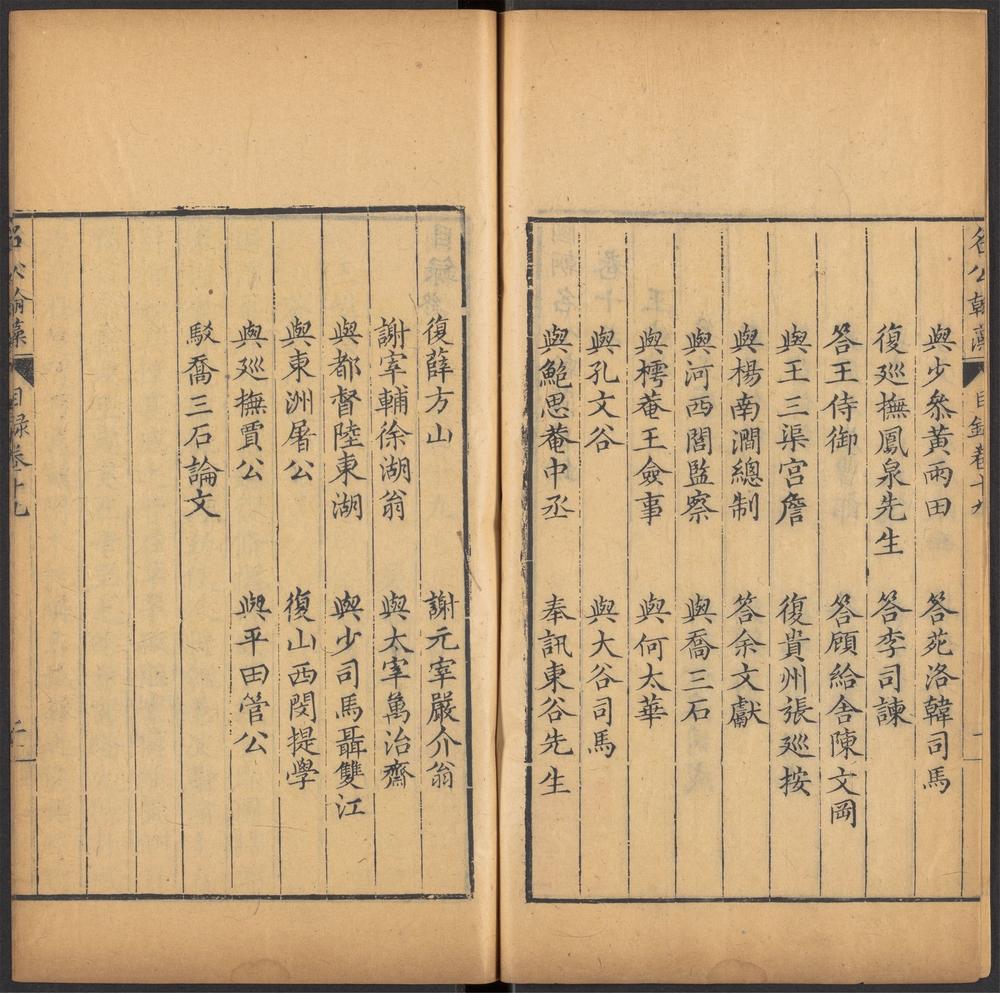 名公翰藻
目錄卷十九
與少參黃雨田
答苑洛韓司馬
復廵撫鳳泉先生
答李司諫
答王侍御
答顧給舍陳文岡
與王三渠宮詹
復貴州張廵按
與楊南澗總制
答余文獻
與河西閻監察
與喬三石
與樗菴王僉事
與何太華
與孔文谷
與大谷司馬
與鮑思菴中丞
奉訊東谷先生
復薛方山
謝元宰嚴介翁
謝宰輔徐湖翁
與太宰萬治齋
與都督陸東湖
與少司馬聶雙江
與東洲屠公
復山西閔提學
與廵撫賈公
與平田管公
駁喬三石論文
名公翰藻
目錄卷十九